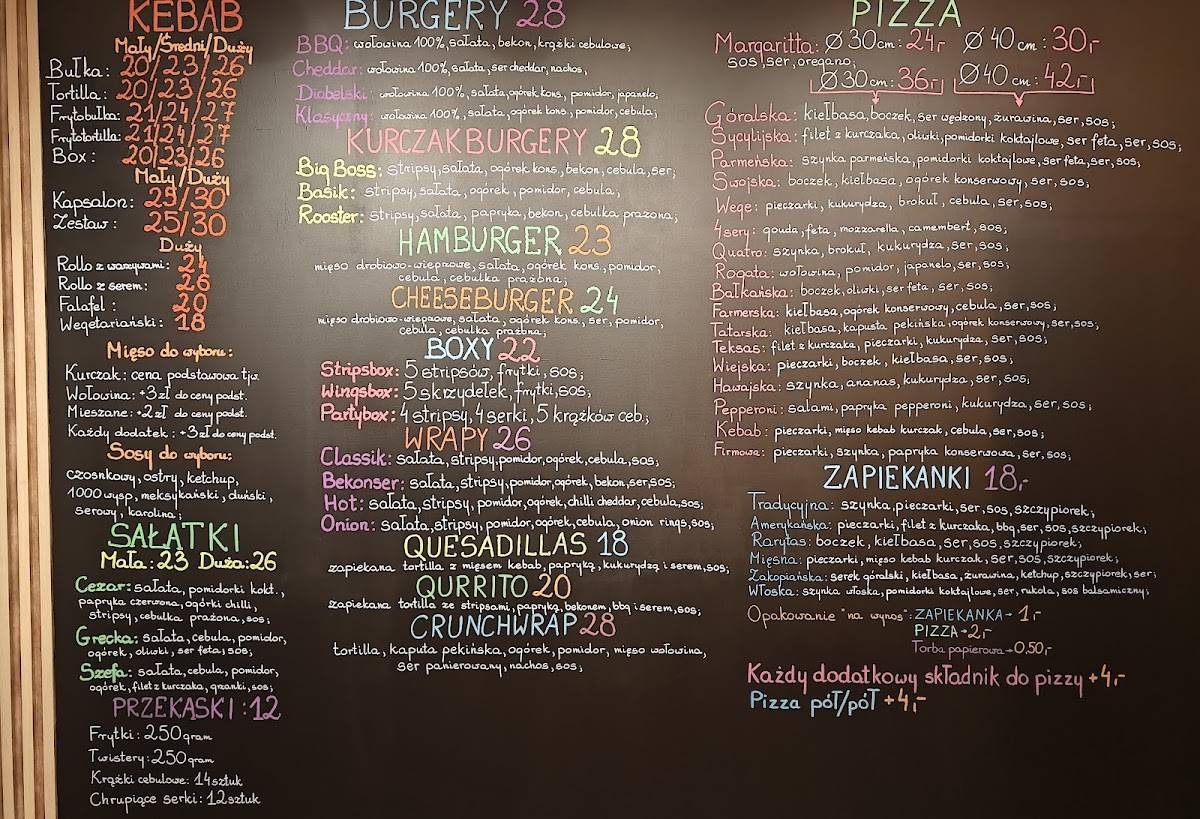 KEBAB
Mały/Średni/Duży
Bułka: 20/23/26
Tortilla: 20/23/26
Frytobułka: 21/24/27
Frytotortilla: 21/24/27
Box: 20/23/26
Mały/Duży
Kapsalon: 25/30
Zestaw: 25/30
Duży
Rollo z warzywami: 24
Rollo z serem: 26
Falafel: 20
Wegetariański: 18
Mięso do wyboru:
Kurczak: cena podstawowa tjw.
Wołowina: +3zł do ceny podst.
Mieszane: +2zł do ceny podst.
Każdy dodatek: +3zł do ceny podst.
Sosy do wyboru:
czosnkowy, ostry, ketchup,
1000 wysp, meksykański, duński,
serowy, karolina;
SAŁATKI
Mała: 23 Duża: 26
Cezar: sałata, pomidorki kokt.,
papryka czerwona, ogórki chilli,
stripsy, cebulka prażona, sos;
Grecka: sałata, cebula, pomidor,
ogórek, oliwki, ser feta, sos;
Szefa: sałata, cebula, pomidor,
ogórek, filet z kurczaka, grzanki, sos;
PRZEKĄSKI: 12
Frytki: 250gram
Twistery: 250gram
Krążki cebulowe: 14sztuk
Chrupiące serki: 12sztuk
BURGERY 28
BBQ: wołowina 100%, sałata, bekon, krążki cebulowe;
Cheddar: wołowina 100%, sałata, ser cheddar, nachos,
Diabelski: wołowina 100%, sałata, ogórek kons, pomidor, japanelo,
Klasyczny: wołowina 100%, sałata, ogórek kons, pomidor, cebula;
KURCZAKBURGERY 28
Big Boss: stripsy, sałata, ogórek kons, bekon, cebula, ser;
Basik: stripsy, sałata, ogórek, pomidor, cebula;
Rooster: stripsy, sałata, papryka, bekon, cebulka prażona;
HAMBURGER 23
mięso drobiowo-wieprzowe, sałata, ogórek kons., pomidor,
cebula, cebulka prażona;
CHEESEBURGER 24
mięso drobiowo-wieprzowe, sałata, ogórek kons., ser, pomidor,
cebula, cebulka prażona;
BOXY 22
Stripsbox: 5 stripsów, frytki, sos;
Wingsbox: 5 skrzydełek, frytki, sos;
Partybox: 4 stripsy, 4 serki, 5 krążków ceb.;
WRAPY 26
Classik: sałata, stripsy, pomidor, ogórek, cebula, sos;
Bekonser: sałata, stripsy, pomidor, ogórek, bekon, ser, sos;
Hot: sałata, stripsy, pomidor, ogórek, chilli cheddar, cebula, sos;
Onion: sałata, stripsy, pomidor, ogórek, cebula, onion rings, sos;
QUESADILLAS 18
zapiekana tortilla z mięsem kebab, papryką, kukurydzą i serem, sos;
QURRITO 20
zapiekana tortilla ze stripsami, papryką, bekonem, bbq i serem, sos;
CRUNCHWRAP 28
tortilla, kaputa pekińska, ogórek, pomidor, mięso wołowina,
ser panierowany, nachos, sos;
PIZZA
Margaritta: Ø 30cm: 24,- Ø 40cm: 30,-
sos, ser, oregano;
Ø 30cm: 36,- Ø 40cm: 42,-
Góralska: kiełbasa, boczek, ser wędzony, żurawina, ser, sos;
Sycylijska: filet z kurczaka, oliwki, pomidorki koktajlowe, ser feta, ser, sos;
Parmeńska: szynka parmeńska, pomidorki koktajlowe, ser feta, ser, sos;
Swojska: boczek, kiełbasa, ogórek konserwowy, ser, sos;
Wege: pieczarki, kukurydza, brokuł, cebula, ser, sos;
4sery: gouda, feta, mozzarella, camembert, sos;
Quatro: szynka, brokuł, kukurydza, ser, sos;
Rogata: wołowina, pomidor, japaneło, ser, sos;
Bałkańska: boczek, oliwki, ser feta, ser, sos;
Farmerska: kiełbasa, ogórek konserwowy, cebula, ser, sos;
Tatarska: kiełbasa, kapusta pekińska, ogórek konserwowy, ser, sos;
Teksas: filet z kurczaka, pieczarki, kukurydza, ser, sos;
Wiejska: pieczarki, boczek, kiełbasa, ser, sos;
Hawajska: szynka, ananas, kukurydza, ser, sos;
Pepperoni: salami, papryka pepperoni, kukurydza, ser, sos;
Kebab: pieczarki, mięso kebab kurczak, cebula, ser, sos;
Firmowa: pieczarki, szynka, papryka konserwowa, ser, sos;
ZAPIEKANKI 18,-
Tradycyjna: szynka, pieczarki, ser, sos, szczypiorek;
Amerykańska: pieczarki, filet z kurczaka, bbq, ser, sos, szczypiorek;
Rarytas: boczek, kiełbasa, ser, sos, szczypiorek;
Mięsna: pieczarki, mięso kebab kurczak, ser, sos, szczypiorek;
Zakopiańska: serek góralski, kiełbasa, żurawina, ketchup, szczypiorek, ser;
Włoska: szynka włoska, pomidorki koktajlowe, ser, rukola, sos balsamiczny;
Opakowanie "na wynos": ZAPIEKANKA → 1,-
PIZZA → 2,-
Torba papierowa → 0,50,-
Każdy dodatkowy składnik do pizzy +4,-
Pizza pół/pół +4,-